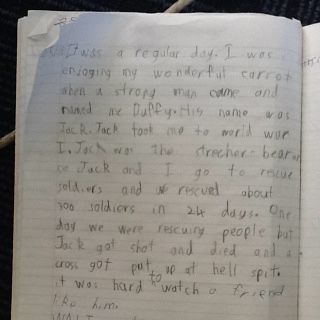 It was a regular day. I was
enjoying my wonderful carrot
when a strong man came and
named me Duffy. His name was
Jack. Jack took me to world war
I. Jack was the strecher-bearer
so Jack and I go to rescue
soldiers and we rescued about
300 soldiers in 24 days. One
day we were rescuing people but
Jack got shot and died and a
cross got put up at hell spit.
it was hard to watch a friend
like him.